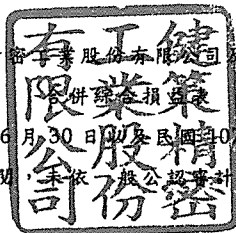 密工業股份有限公司
合併綜合損益表
6月30日以及民國10
閱，未依一般公認審計
健策精密
工業股份
有限公司